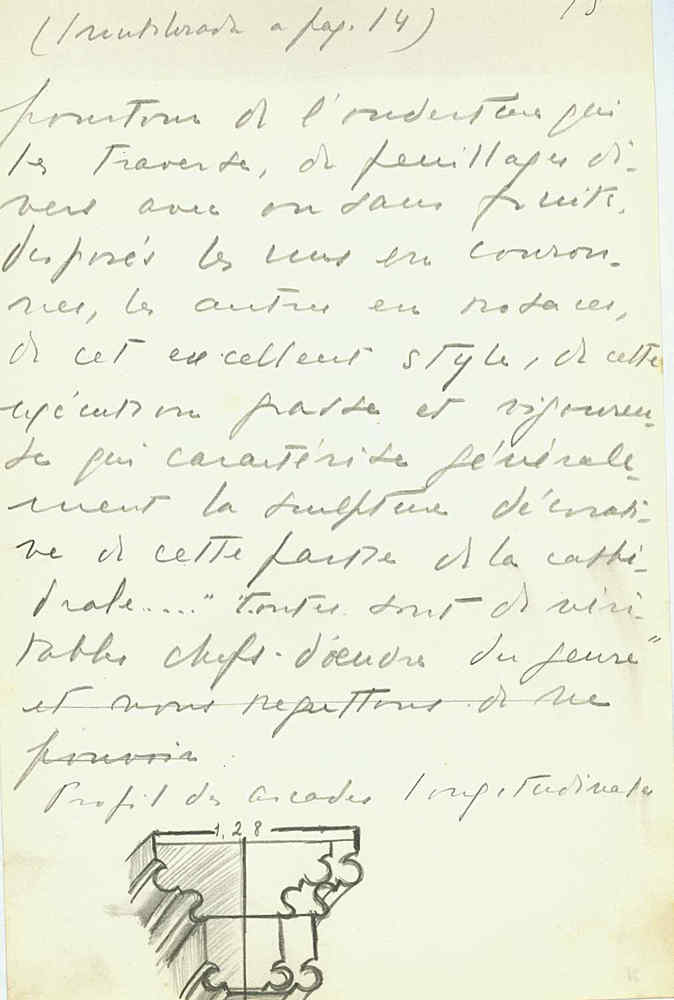 15
( a pag. 14)
pourtour de l'ouverture qui
les traverse, de feuillages di-
vers avec ou sans fruits,
disposés les uns en couron-
nes, les autres en rosaces,
de cet excellent style, de cette
exécution grasse et vigoureu-
se qui caractérise générale-
ment la sculpture décorati-
ve de cette partie de la cathé-
drale....." "toutes sont de véri-
tables chefs-d'œuvre du genre"
et nous regrettons de ne
pouvoir
Profil des arcades longitudinales
1,28